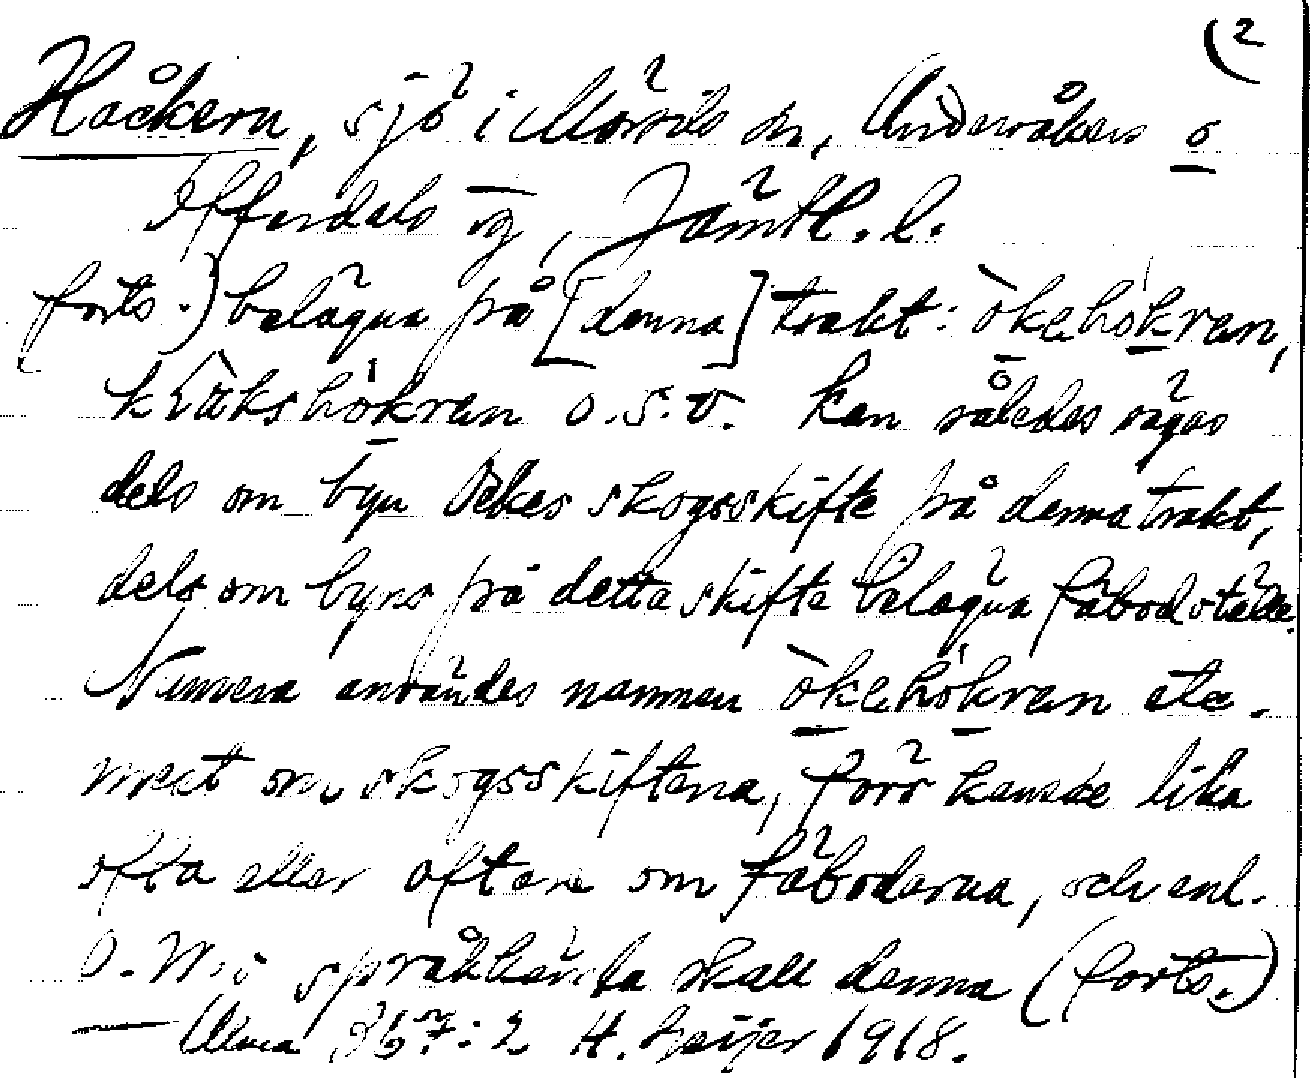 (2
Håckern, sjö i Mörsils sn, Undersåkers o
Offerdals tg, Jämtl. l.
forts.) belägna på [denna] trakt: òkehòkran,
kràkshòkran o.s.v. kan således sägas
dels om byn Ockes skogsskifte på denna trakt,
dels om byns på detta skifte belägna fäbodställe.
Numera användes namnen òkehòkran etc.
mest om skogsskiftena, förr kanske lika
ofta eller oftare om fäbodarna, och enl.
O. W:s språkkänsla skall denna (forts.)
— Ulma 367:2 H. Geijer 1918.